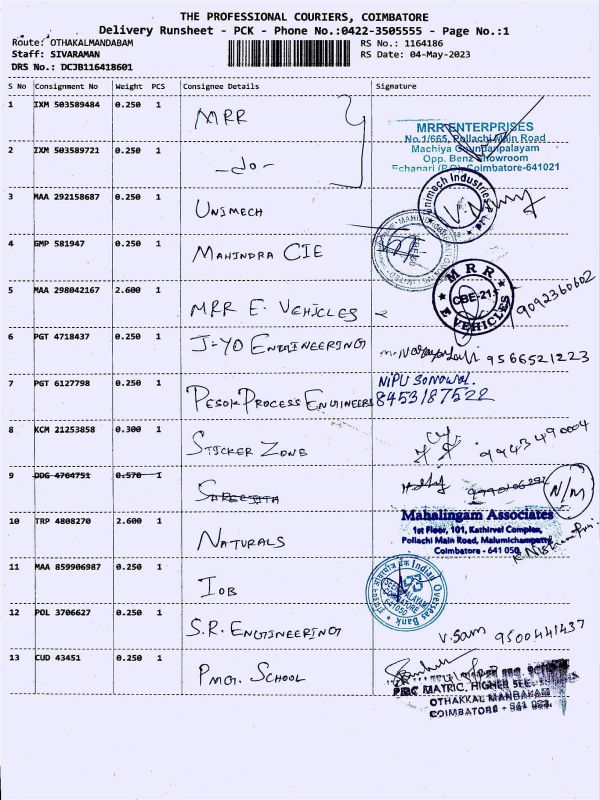 THE PROFESSIONAL COURIERS, COIMBATORE
Delivery Runsheet - PCK - Phone No.:0422-3505555 - Page No.:1
Route: OTHAKALMANDABAM
RS No.: 1164186
Staff: SIVARAMAN
RS Date: 04-May-2023
DRS No.: DCJB116418601
S No Consignment No Weight PCS Consignee Details Signature
1 IXM 503589484 0.250 1 MRR
MRR ENTERPRISES
No.1/665, Pollachi Main Road
Machiya Goundanpalayam
Opp. Benz Showroom
Echanari (P.O), Coimbatore-641021
2 IXM 503589721 0.250 1 -do-
3 MAA 292158687 0.250 1 UNIMECH
Unimech Industries
4 GMP 581947 0.250 1 MAHINDRA CIE
5 MAA 298042167 2.600 1 MRR E. VEHICLES
MRR
CBE-21
E VEHICLES
9092360602
6 PGT 4718437 0.250 1 J-YO ENGINEERING 9566521223
7 PGT 6127798 0.250 1 PESOK PROCESS ENGINEERS
NIPU SONOWAL.
8453187522
8 KCM 21253858 0.300 1 STICKER ZONE 9943490004
9 DDG 4764751 0.570 1
N/M
10 TRP 4808270 2.600 1 NATURALS
Mahalingam Associates
1st Floor, 101, Kathirvel Complex,
Pollachi Main Road, Malumichampatty
Coimbatore - 641 050.
11 MAA 859906987 0.250 1 IOB
Indian Overseas Bank
12 POL 3706627 0.250 1 S.R. ENGINEERING V.Sam 9500441437
13 CUD 43451 0.250 1 PMG. SCHOOL
MATRIC. HIGHER SEC.
OTHAKKAL MANDAPAM
COIMBATORE - 641 032.